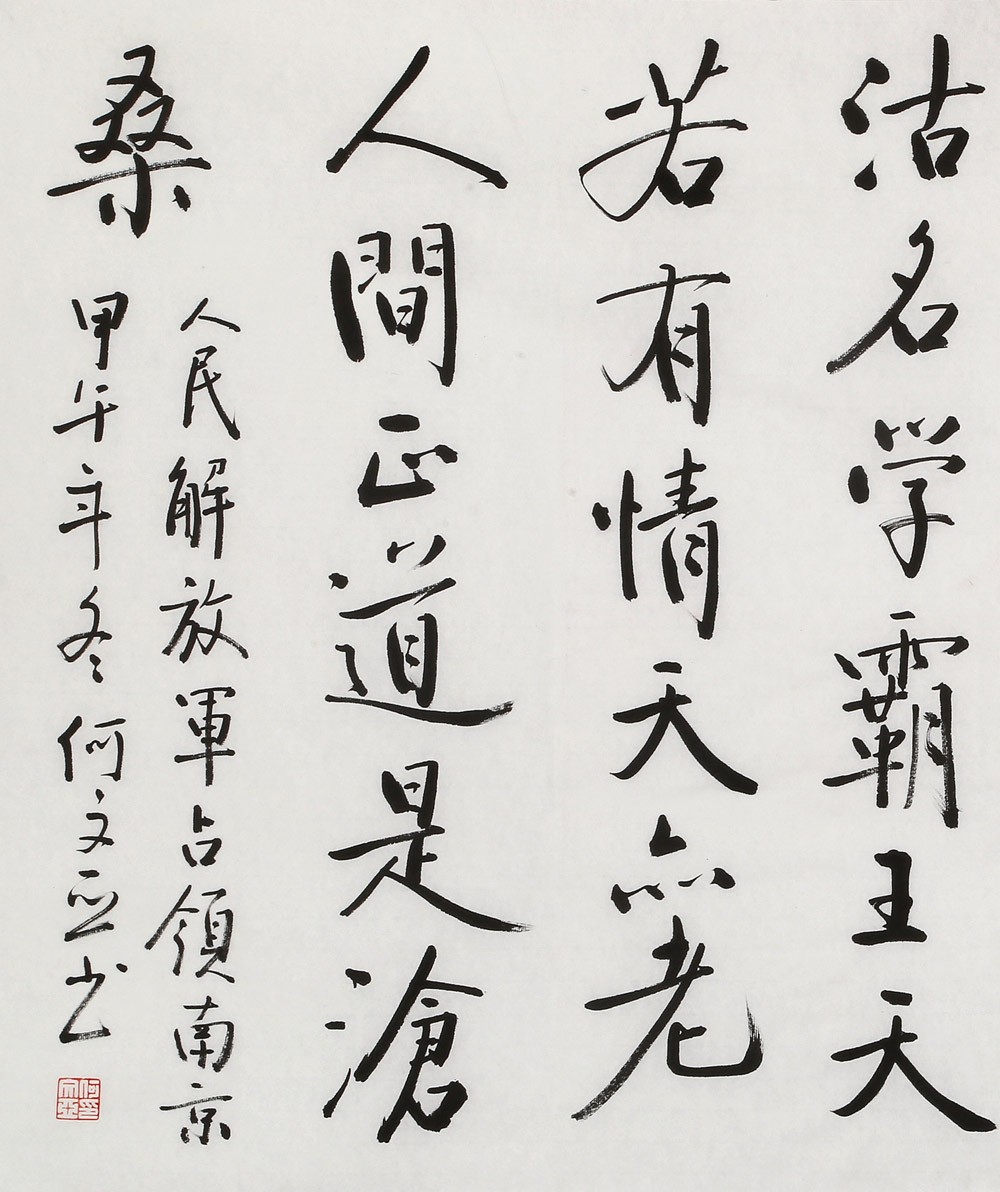 沽名学霸王天
若有情天亦老
人間正道是滄
桑
人民解放軍占領南京
甲午年冬何文亚书
何印文亞